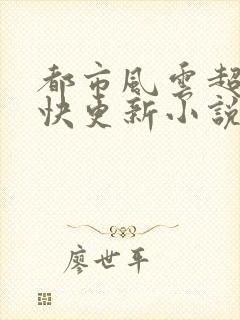 都市風雲超
快更新小說
廖世平